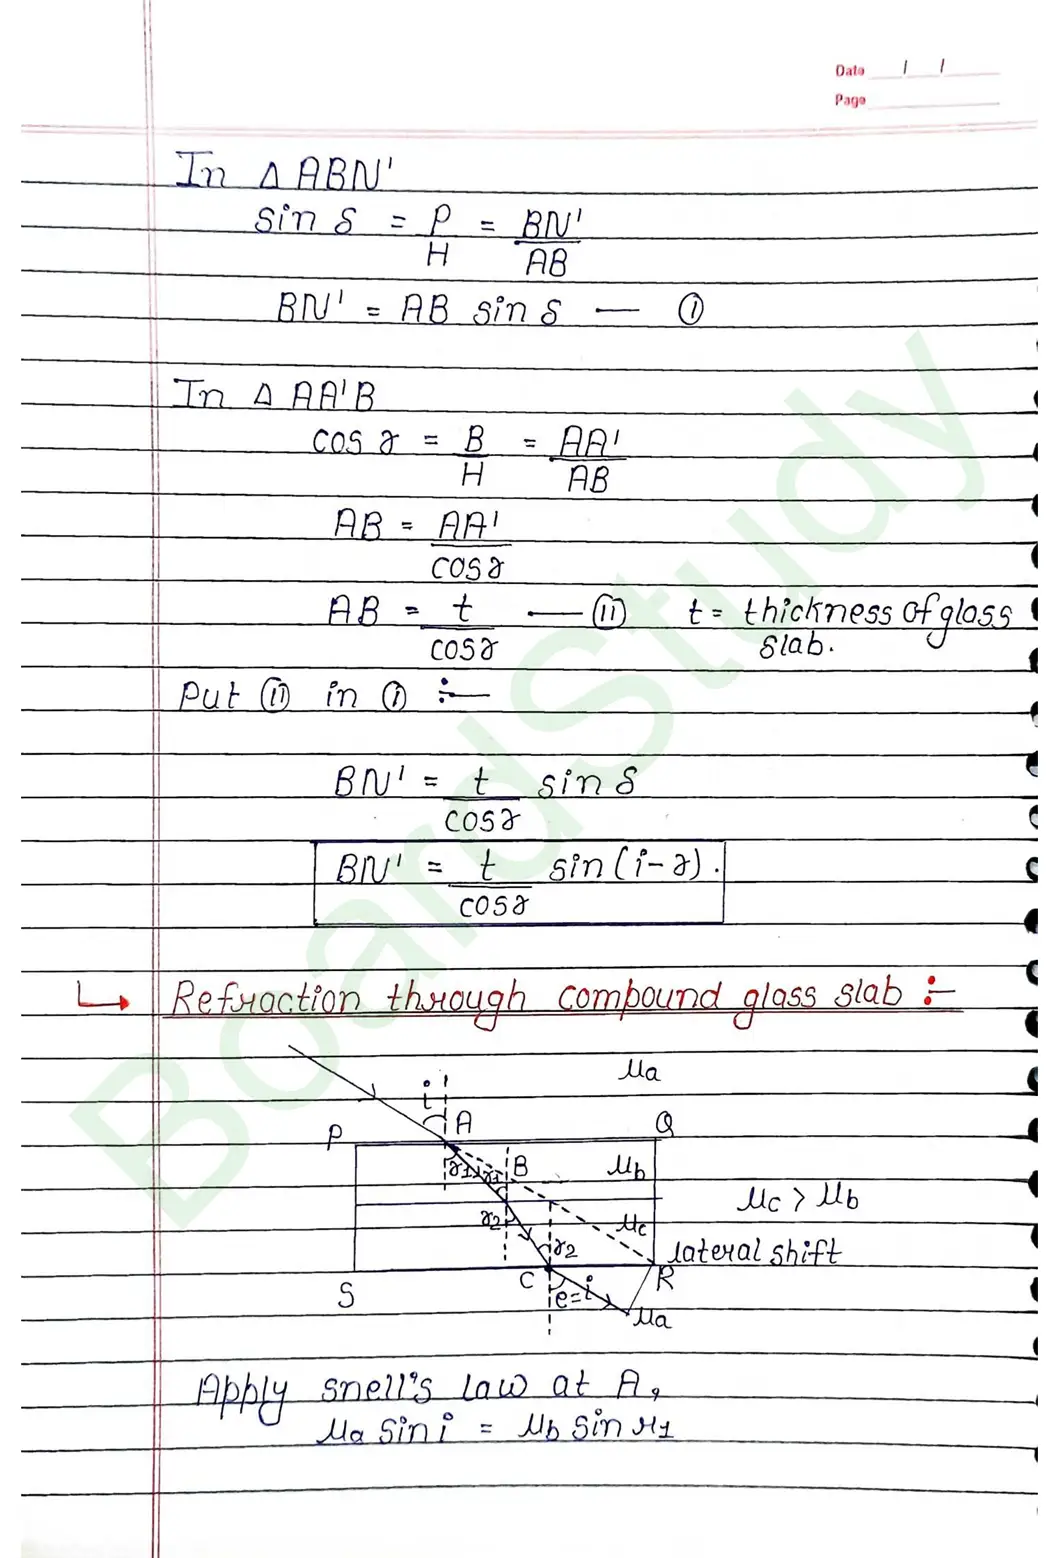 Date / /
Page
In Δ ABN'
sin δ = P/H = BN'/AB
BN' = AB sin δ — (i)
In Δ AA'B
cos r = B/H = AA'/AB
AB = AA'/cos r
AB = t/cos r — (ii) t = thickness of glass
slab.
Put (ii) in (i) :—
BN' = t/cos r sin δ
BN' = t/cos r sin (i-r).
Refraction through compound glass slab :—
μa
i
A
P
Q
r1 r1 B
μb
μc > μb
r2
μc
r2
lateral shift
C
R
S
e=i
μa
Apply snell's law at A,
μa sin i = μb sin r1
BoardStudy